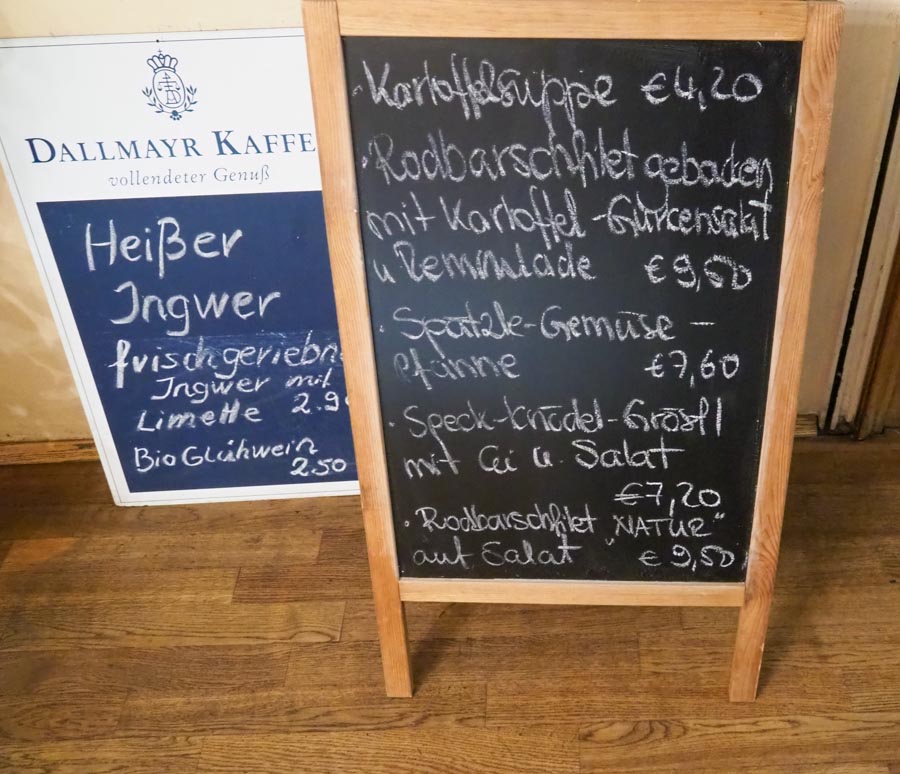 DALLMAYR KAFFE
vollendeter Genuß
Heißer
Ingwer
frischgeriebn
Ingwer mit
Limette 2.9
Bio Glühwein
2.50
Kartoffelsuppe €4,20
· Rodbarschfilet gebacken
mit Kartoffel-Gurkensalat
u Remmulade €9,50
· Spätzle-Gemüse-
Pfanne €7,60
· Speck-Knödel-Gröstl
mit Ei u. Salat
€7,20
· Rodbarschfilet „NATUR"
auf Salat €9,50